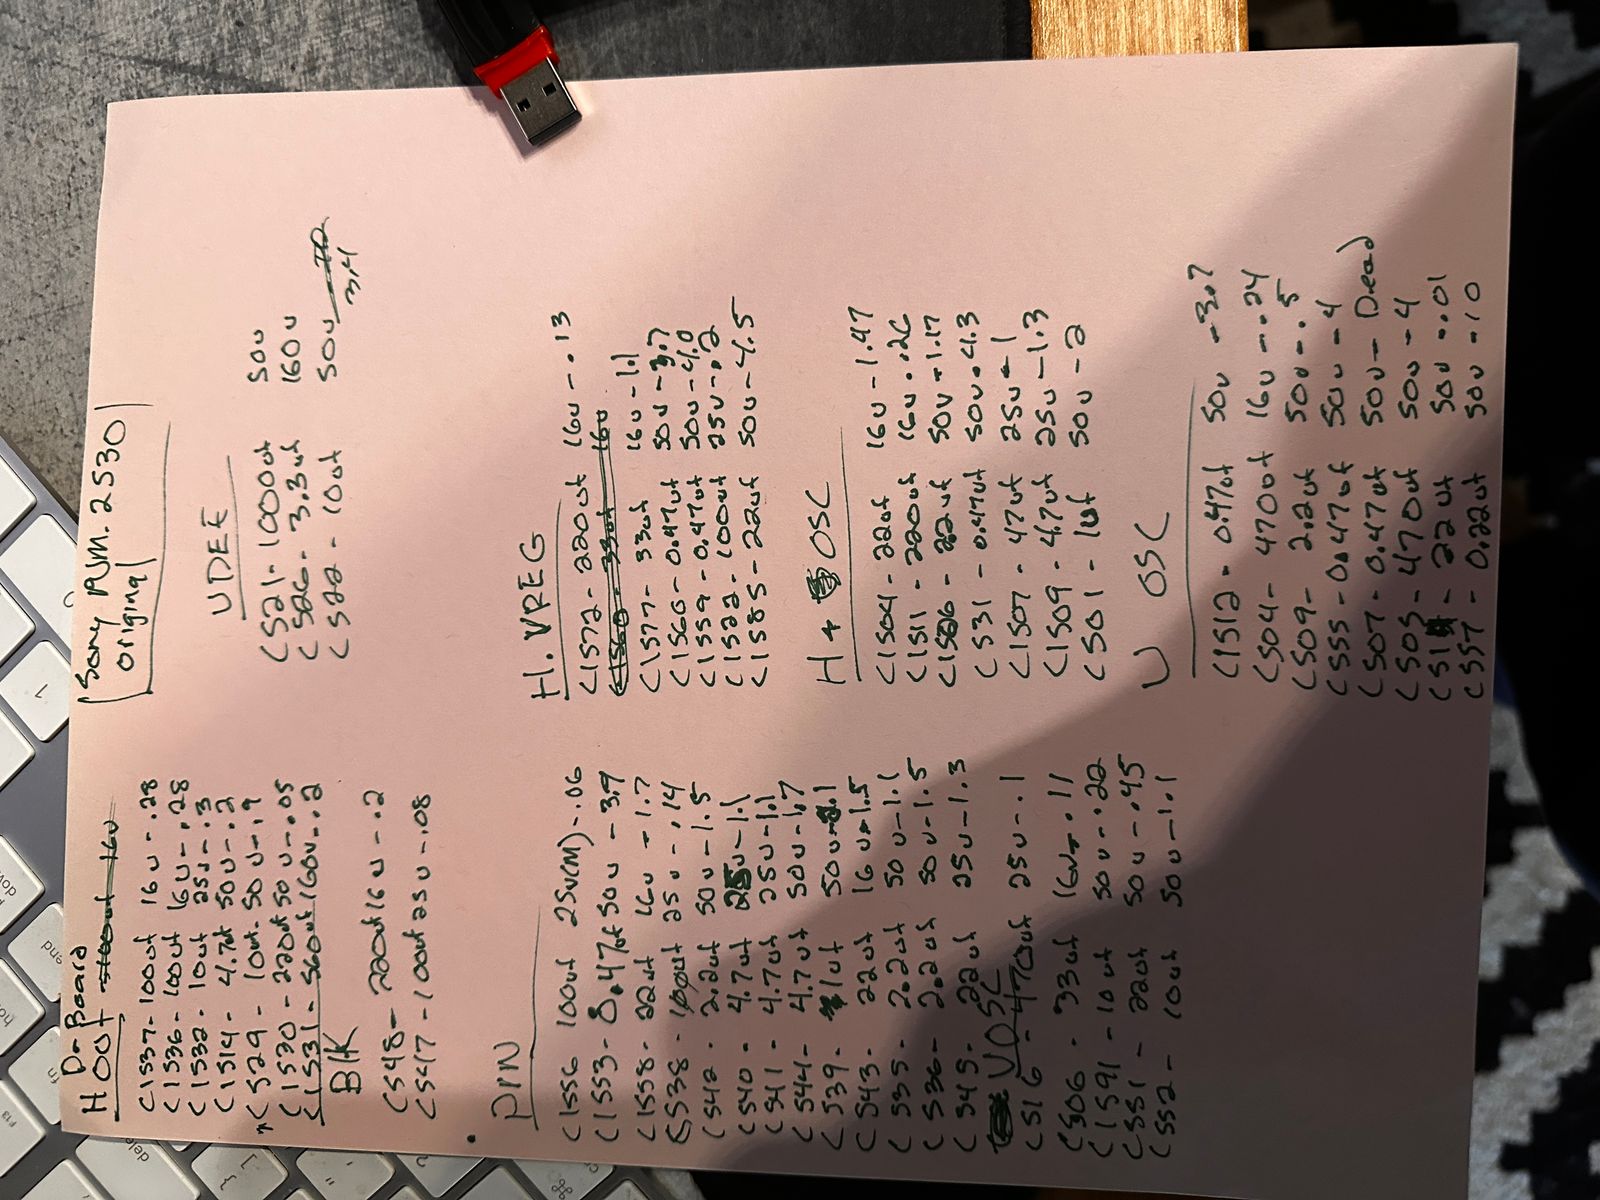 D-Board
H OUT
C1537-100uf 16v-.28
C1536-100uf 16v-.28
C1532-10uf 25v-.3
C1514-4.7uf 50v-.2
*C529-10uf-50v-.9
C1530-220uf 50v-.05
C1531-560uf 160v-.2
BIK
C548-220uf 16v-.2
C547-100uf 25v-.08
PIN
C1556 100uf 25v(M)-.06
C1553-0.47uf 50v-3.9
C1558-22uf 16v-1.7
C538-100uf 25v-.14
C542-2.2uf 50v-1.5
C540-4.7uf 25v-1.1
C541-4.7uf 25v-1.1
C544-4.7uf 50v-1.7
C539-1uf 50v-2.1
C543-22uf 16v-1.5
C535-2.2uf 50v-1.1
C536-2.2uf 50v-1.5
C545-22uf 25v-1.3
VOSC
C516-470uf 25v-.1
C506-33uf 16v-.11
C1591-10uf 50v-.22
C551-22uf 50v-.45
C552-10uf 50v-1.1
Sony PVM.2530
original
VDEF
C521-1000uf 50v
C526-3.3uf 160v
C522-10uf 50v 3.4
H.VREG
C1572-220uf 16v-.13
C1560-33uf 16v
C1577-33uf 16v-1.1
C1566-0.47uf 50v-3.7
C1559-0.47uf 50v-4.0
C1522-100uf 25v-.2
C1585-22uf 50v-4.5
H + OSC
C1504-22uf 16v-1.47
C1511-220uf 16v-.26
C1506-22uf 50v-1.17
C531-0.47uf 50v-4.3
C1507-47uf 25v-1
C1509-4.7uf 25v-1.3
C501-1uf 50v-2
V OSC
C1512-0.47uf 50v-3.7
C504-470uf 16v-.24
C509-2.2uf 50v-.5
C555-0.47uf 50v-4
C507-0.47uf 50v-Dead
C505-470uf 50v-4
22uf 50v-.01
C557-0.22uf 50v-10